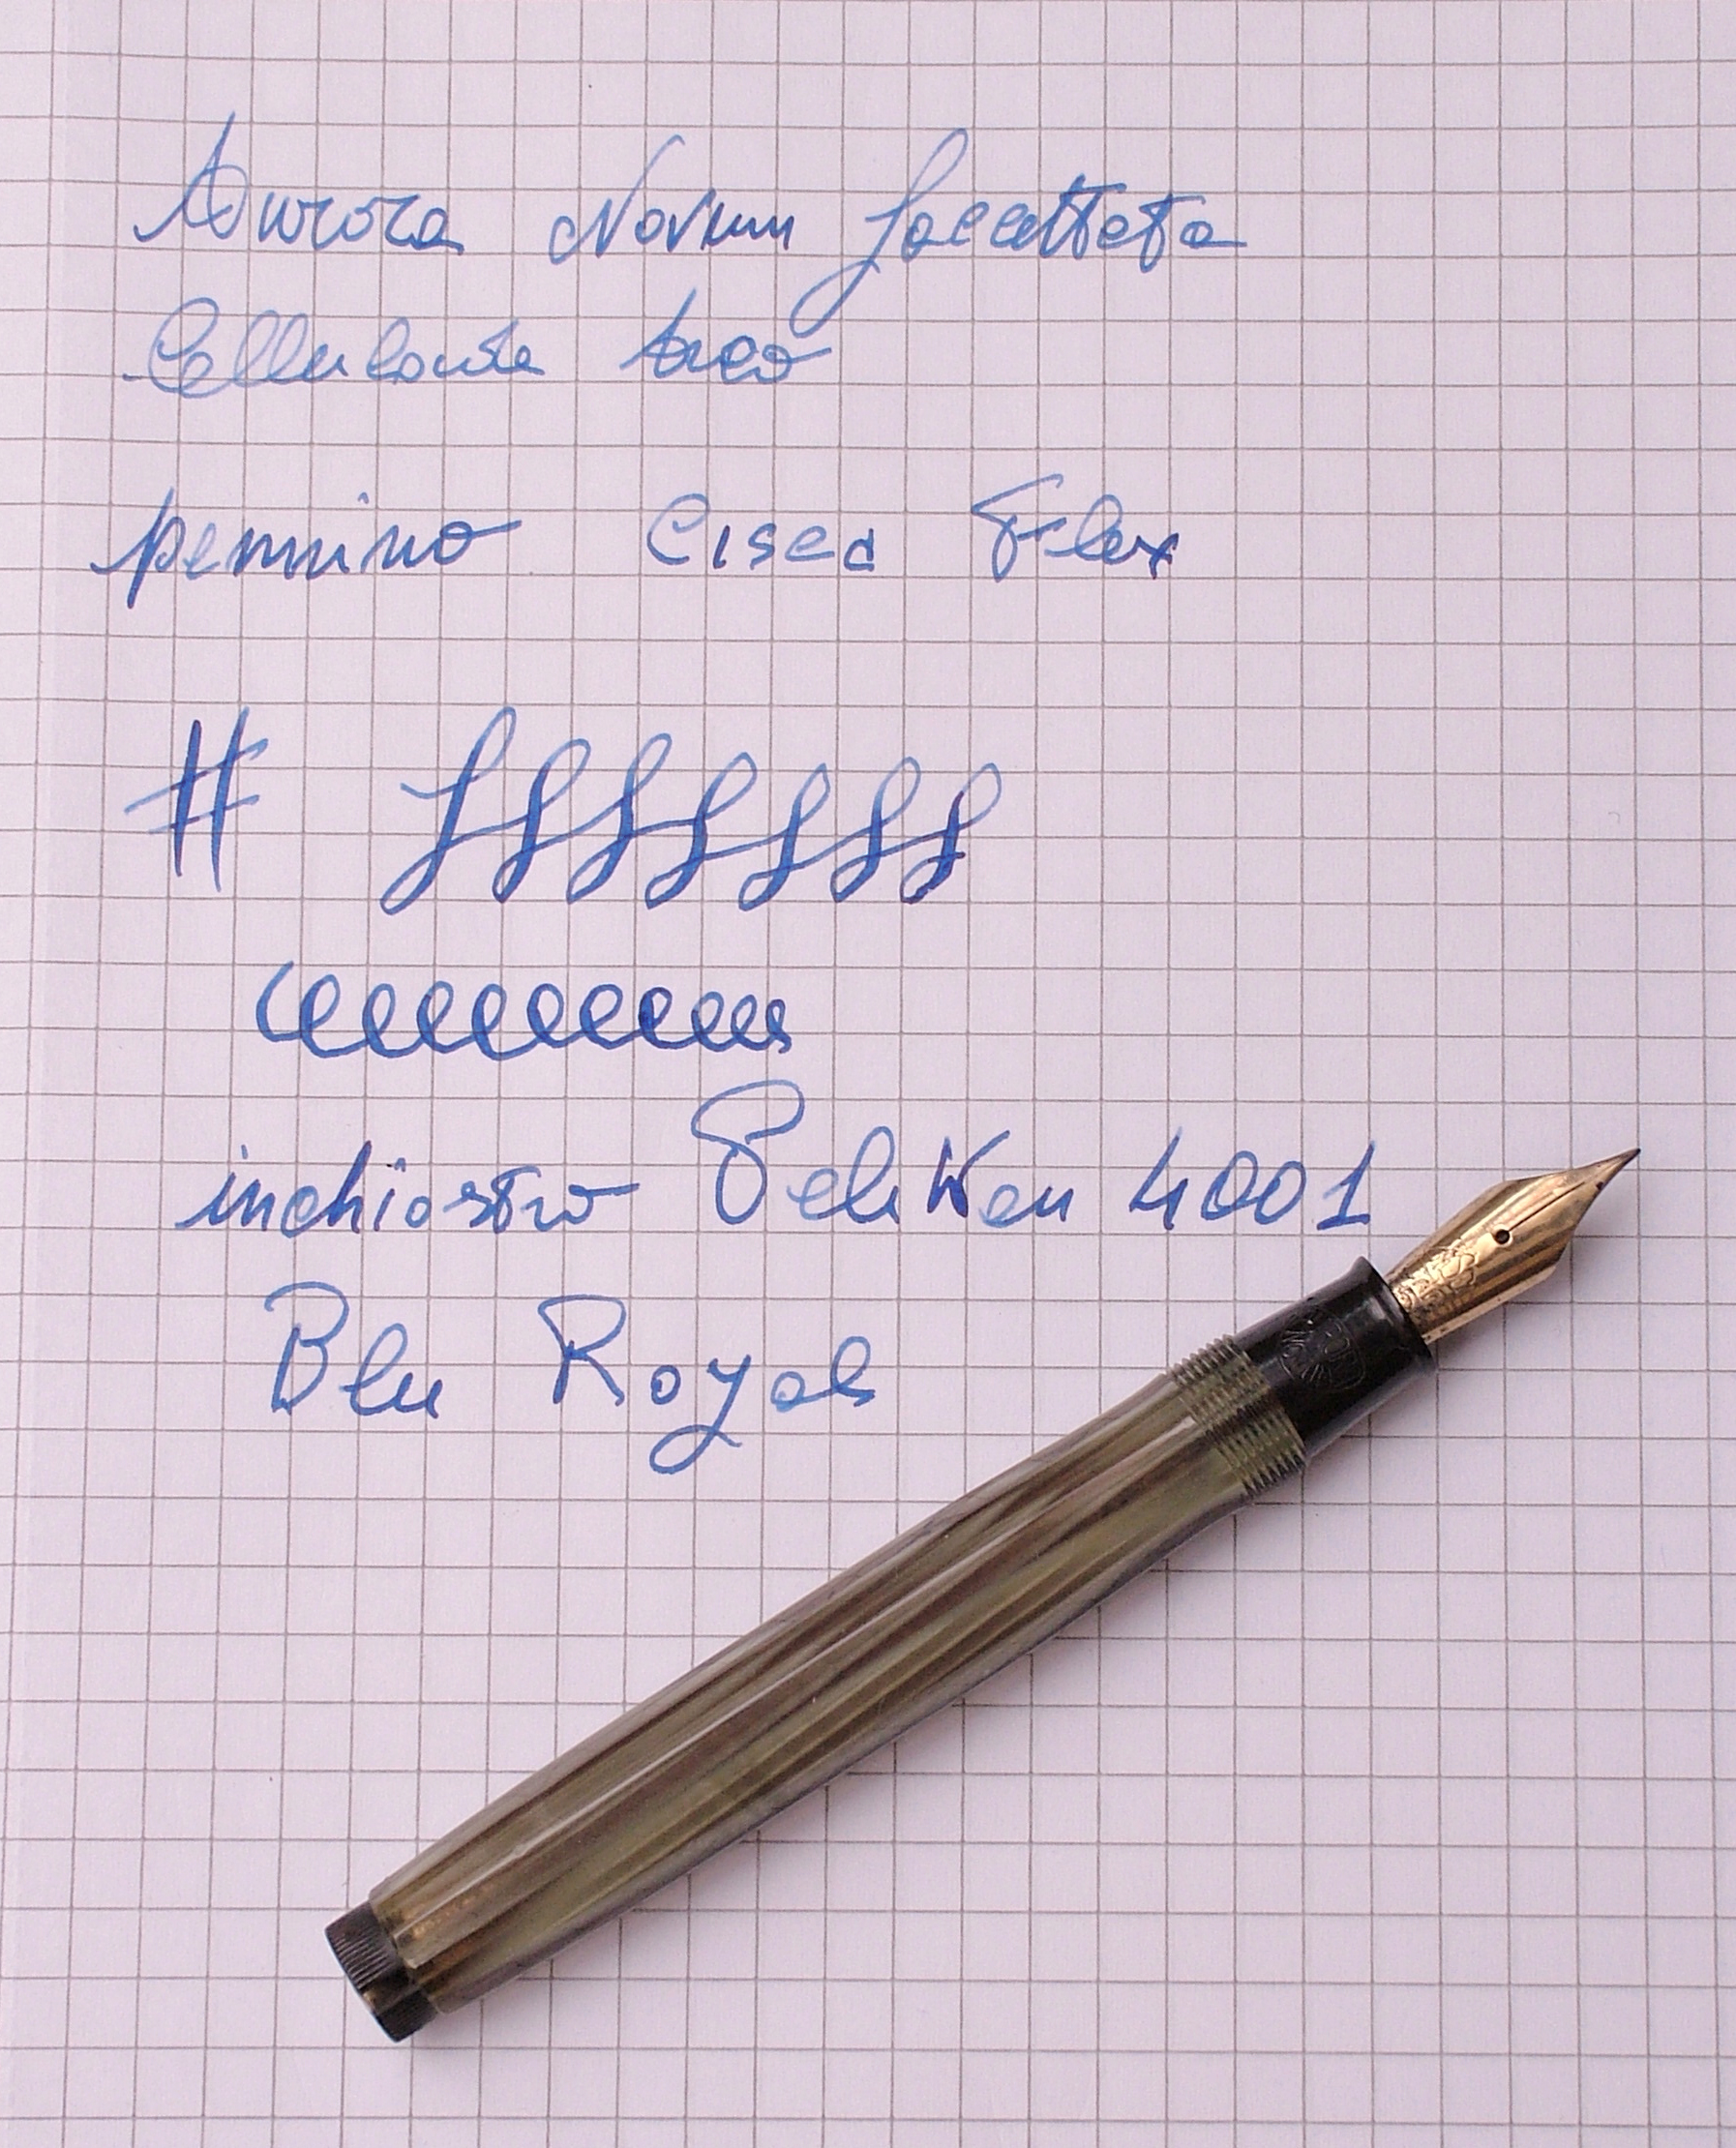 Aurora Novum faccettata
Celluloide arco
pennino Cisea Flex
# fffffff
inchiostro Pelikan 4001
Blu Royal